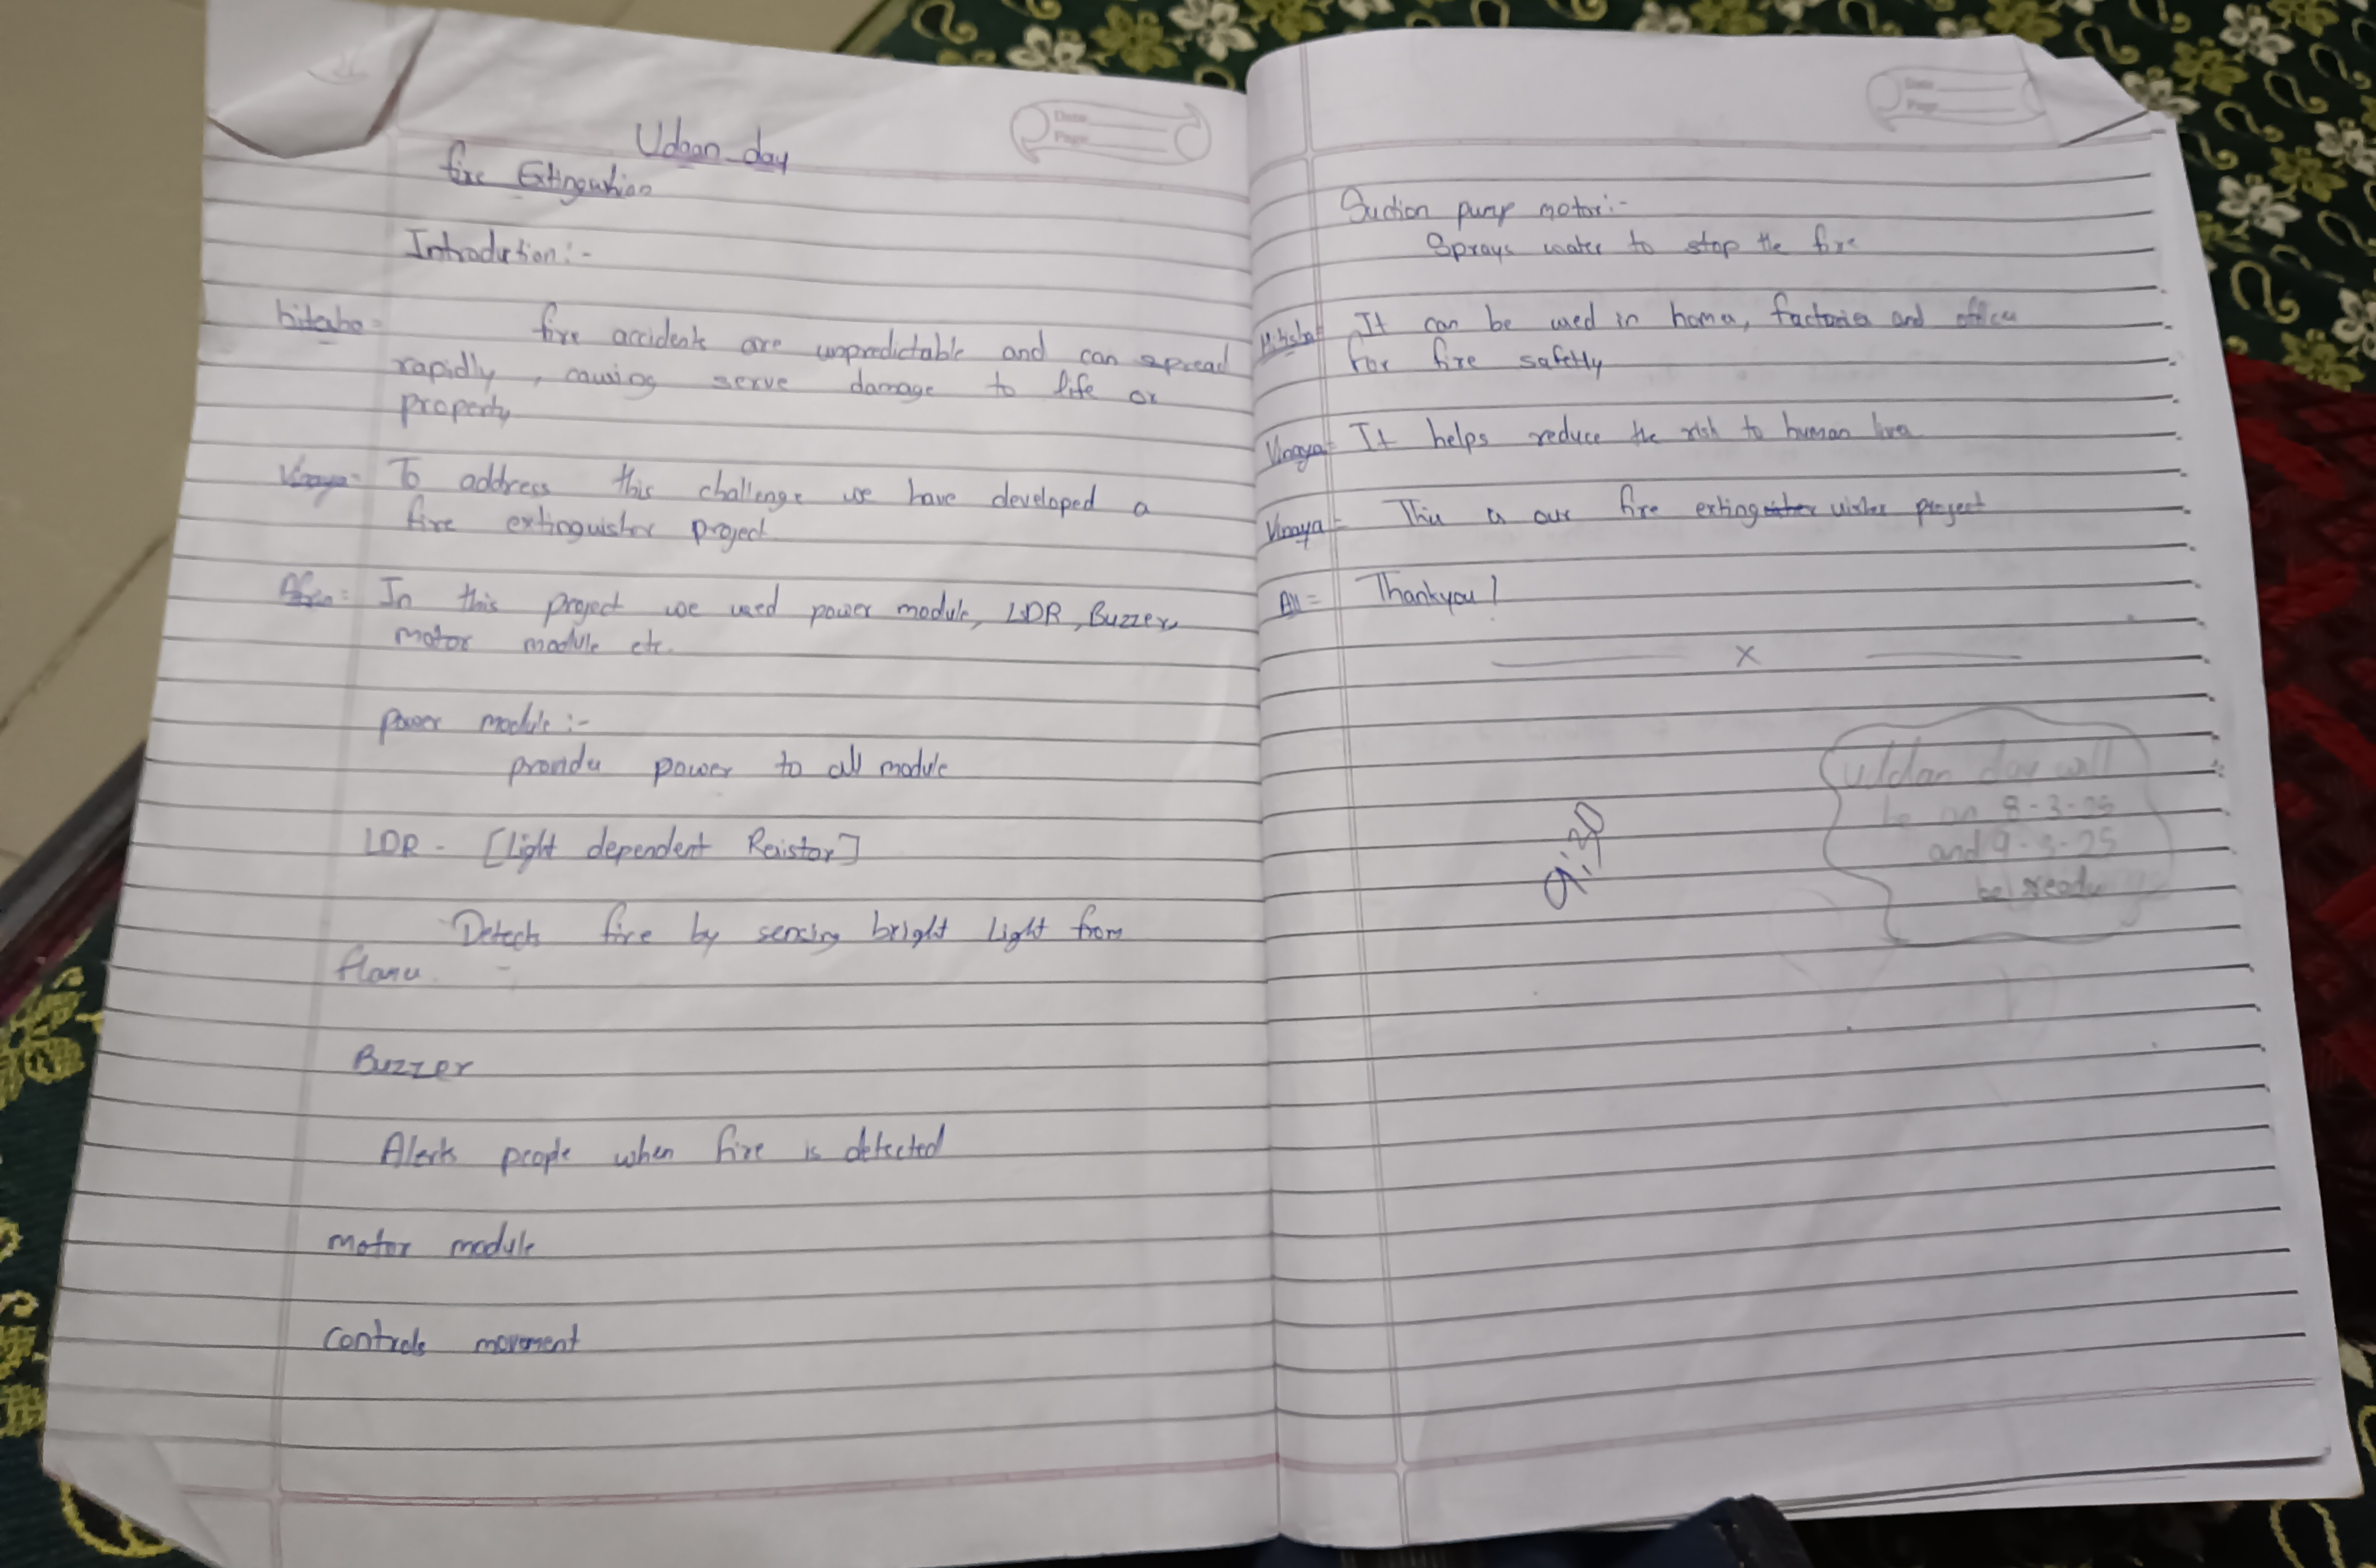 Udaan day
fire Extingution
Introdution:-
hitesha = fire accidents are unpredictable and can spread
rapidly, causing serve damage to life or
property
Vinaya = To address this challenge we have developed a
fire extinguisher project
In this project we used power module, LDR, Buzzer,
motor module etc.
power module:-
provides power to all module
LDR - [Light dependent Resistor]
Detects fire by sensing bright Light from
flames
Buzzer
Alerts people when fire is detected
motor module
controls movement
Date
Page
Suction pump motor:-
Sprays water to stop the fire
Hitesha = It can be used in homes, factories and offices
For fire safetly
Vinaya = It helps reduce the risk to human lives
Vinaya = This is our fire extinguisher project
All = Thankyou!
x
9:30
Uddan day will
be on 8-3-25
and 9-3-25
be ready
Date
Page